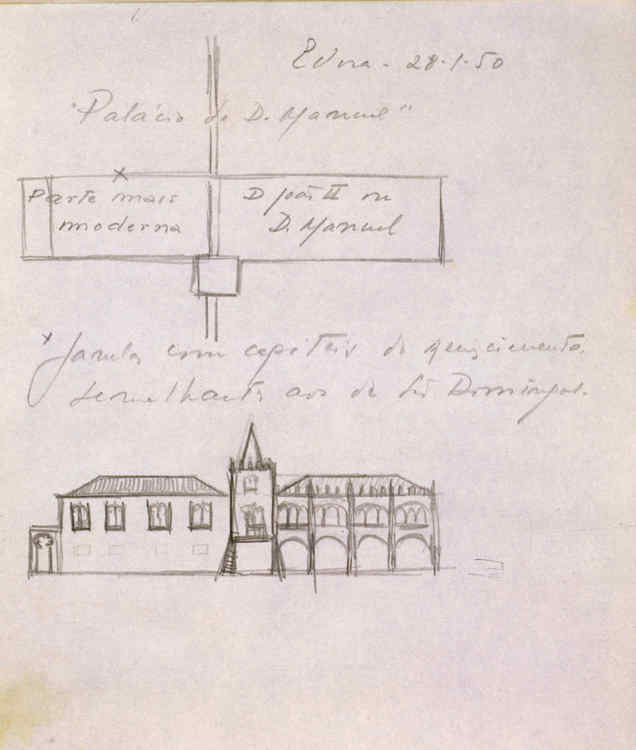 Evora - 28-1-50
"Palácio de D. Manuel"
x
Parte mais
moderna
D João II ou
D. Manuel
x Janelas com capiteis do renascimento.
semelhantes aos de S. Domingos.